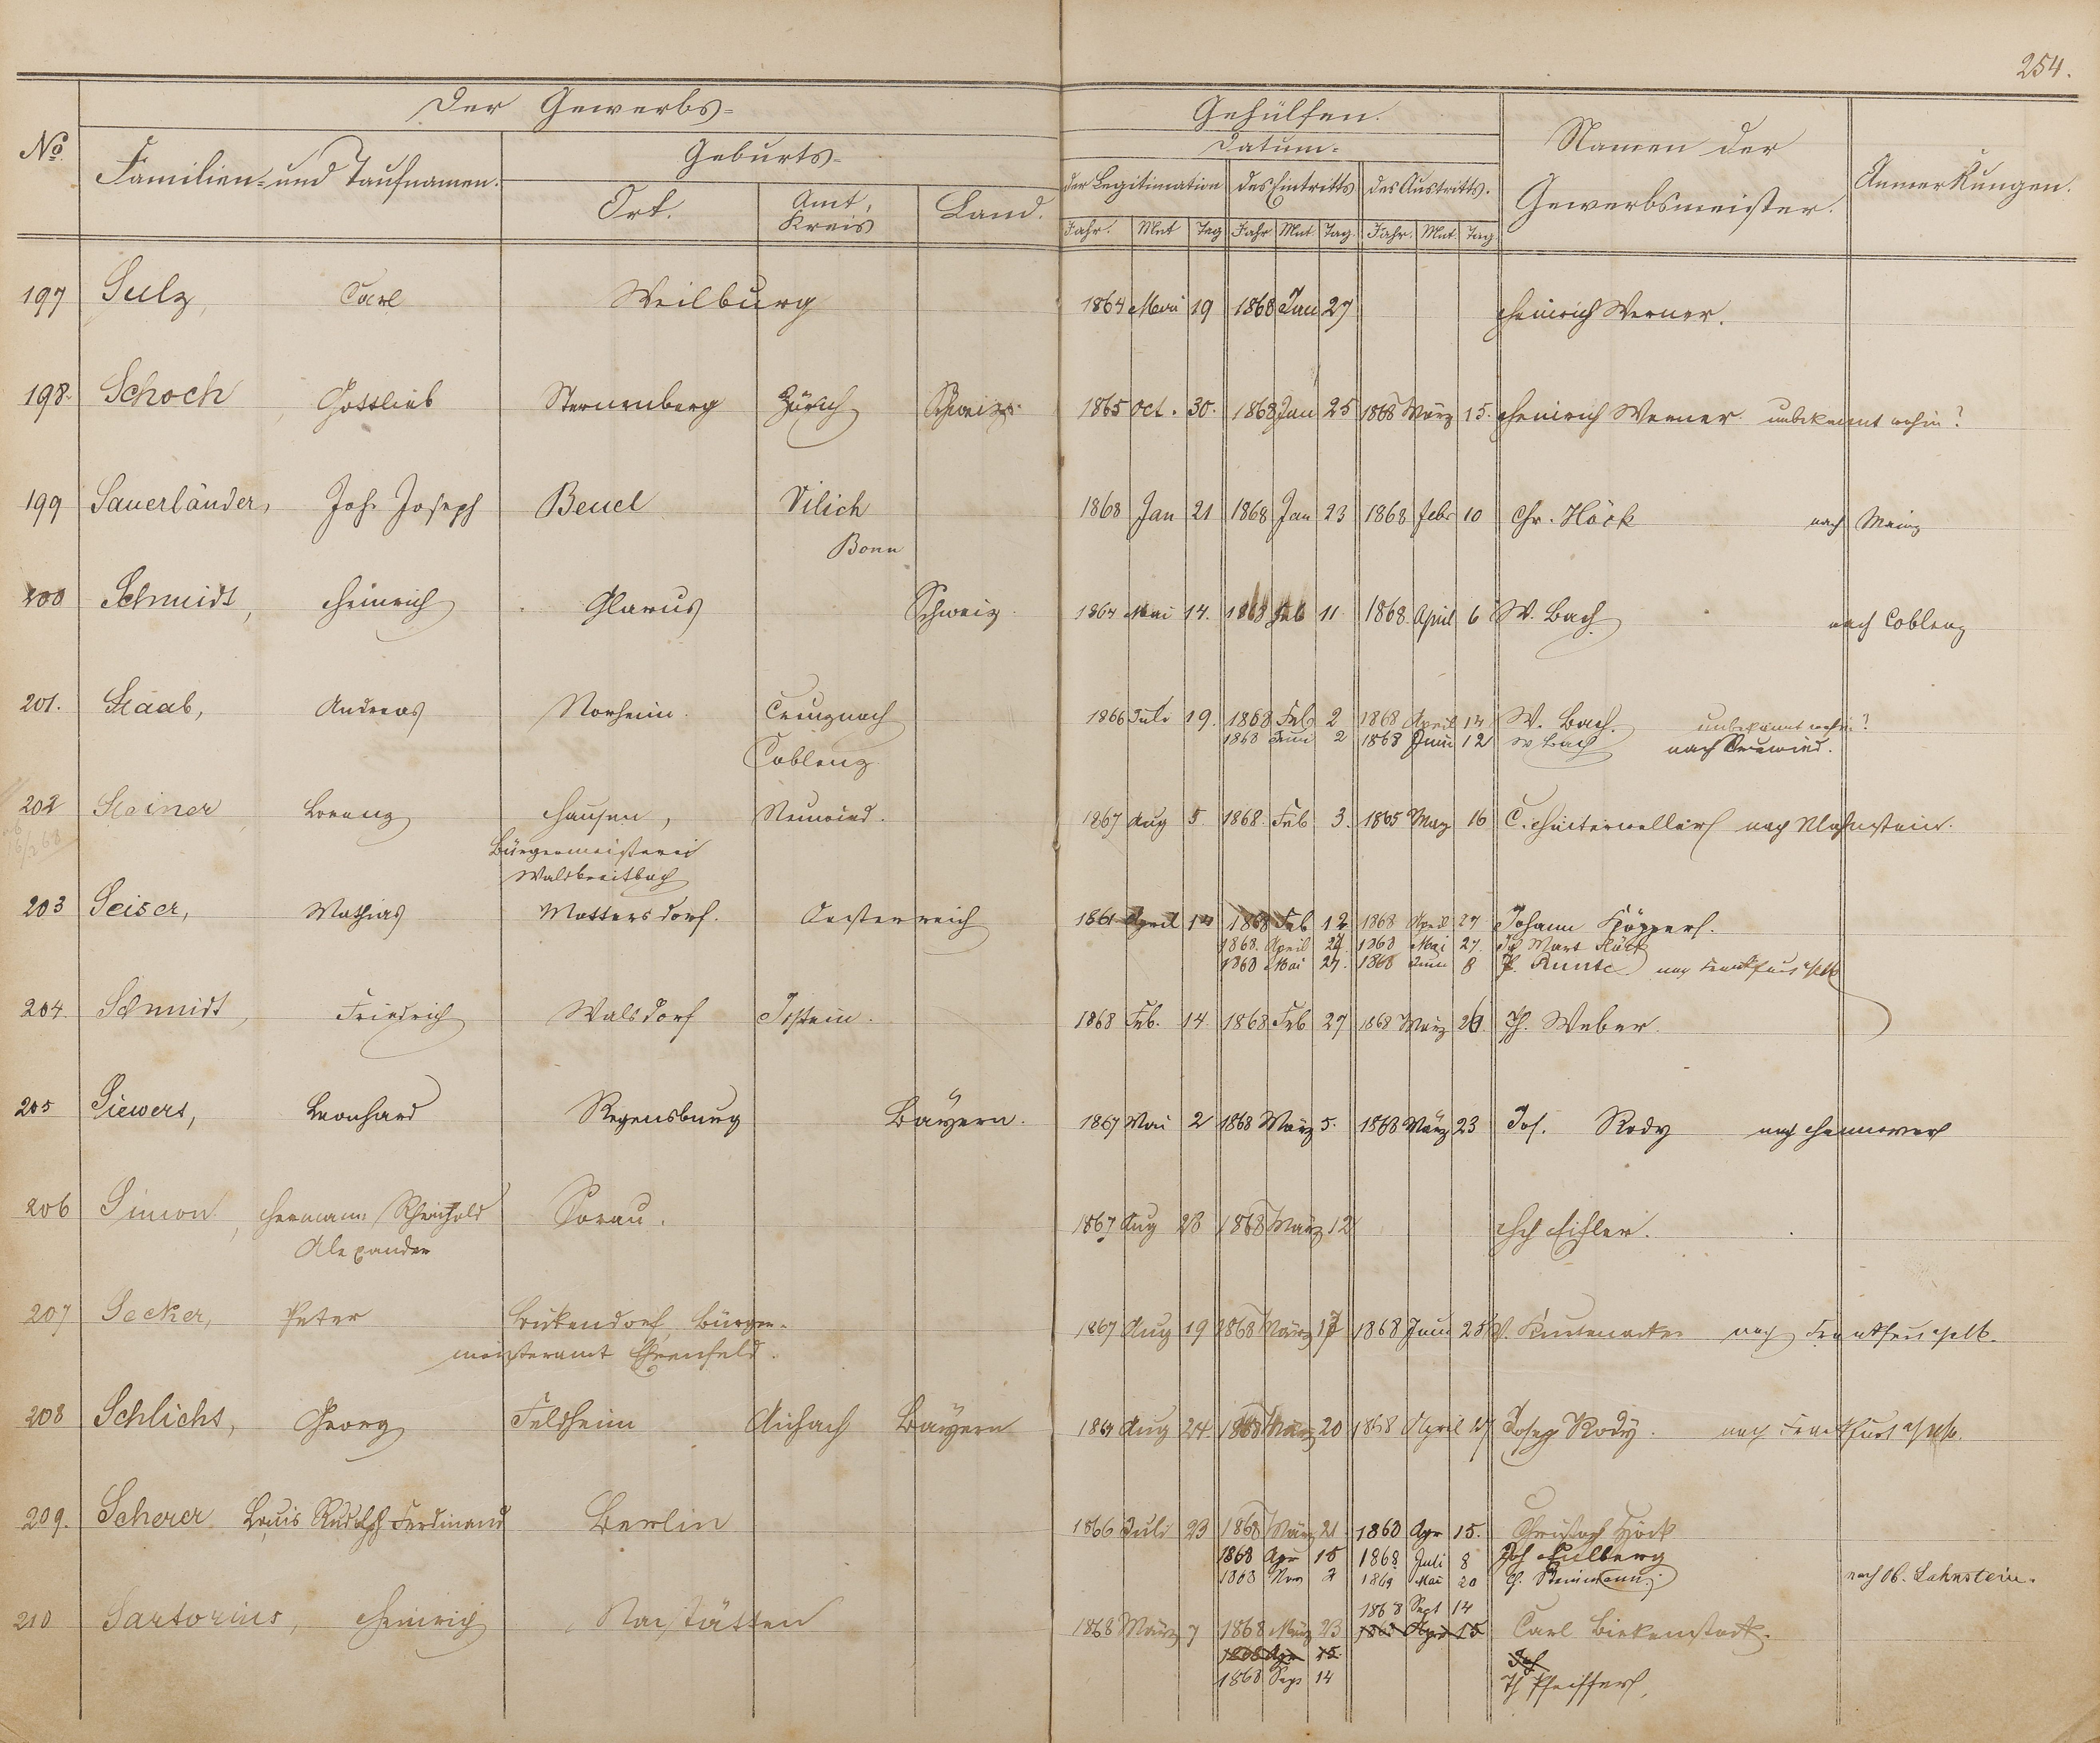 254.
Der Gewerbs=
Gehülfen.
No.
Familien= und Taufnamen.
Geburts=
Datum=
Namen der
Gewerbsmeister.
Anmerkungen.
Ort.
Amt,
Kreis
Land.
der Legitimation
des Eintritts
des Austritts.
Jahr. Mnt Tag Jahr Mnt. Tag. Jahr. Mnt. Tag.
197 Sulz, Carl Weilburg 1864 Mai 19 1868 Jan 27 Heinrich Werner.
198. Schoch, Gottlieb Sternenberg Zürich Schweiz. 1865 Oct. 30. 1868 Jan 25 1868 März 15. Heinrich Werner unbekannt wohin?
199 Sauerländer, Joh. Joseph Beuel Vilich 1868 Jan 21 1868 Jan 23 1868 Febr 10 Chr. Höck nach Mainz
Bonn
200 Schmidt, Heinrich Glarus Schweiz. 1864 Mai 14. 1868 Feb 11 1868. April 6 W. Bach nach Coblenz
201. Staab, Andreas Norheim. Creuznach 1866 Juli 19. 1868 Feb 2 1868 April 14 W. Bach. unbekannt wohin?
1868 Juni 2 1868 Juni 12 W Bach nach Neuwied.
Coblenz
202 Steiner, Lorenz Hausen, Neuwied. 1867 Aug 5. 1868. Feb 3. 1865 May 16 C. Hinterweller nach
Bürgermeisterei
Waldbreitbach
203 Seiser, Mathias Mattersdorf. Oesterreich 1861 April 14 1868 Feb 12 1868 April 27 Johann
1868. April 27. 1868 Mai 27. Mart
1868 Mai 27. 1868 Juni 8 Runte nach Frankfurt a/M
204. Schmidt, Friedrich Walsdorf Idstein. 1868 Feb. 14. 1868 Feb 27 1868 März 26. Ph. Weber.
205 Siewers, Leonhard Regensburg Bayern. 1867 Mai 2 1868 März 5. 1868 März 23 Jos. Rody nach Hannover
206 Simon, Hermann Rheinhold Sorau. 1867 Aug 28 1868 März 12
Alexander
207 Secker, Peter Bürger- 1867 Aug 19 1868 März 17 1868 Juni 25 nach Frankfurt a/M.
meisteramt Ehrenfeld.
208 Schlicht, Georg Feldheim Aichach Bayern 1864 Aug 24. 1868 März 20 1868 April 27 Joseph Rody. nach Frankfurt a/M.
209. Scherer Louis Rudolph Ferdinand Berlin 1866 Juli 23 1868 März 21 1868 Apr 15. Christoph Höck
1868 Apr 15 1868 Juli 8 Jos Fulberg
1868 Nov 2 1869 Mai 20 nach Ob. Lahnstein.
1868 Sept 14
210 Sartorius, Heinrich Nastätten 1868 März 7 1868 März 23 1868 Apr 15 Carl Birkenstock.
1868 Apr 15. Jos
1868 Sept 14 Pfeiffer,